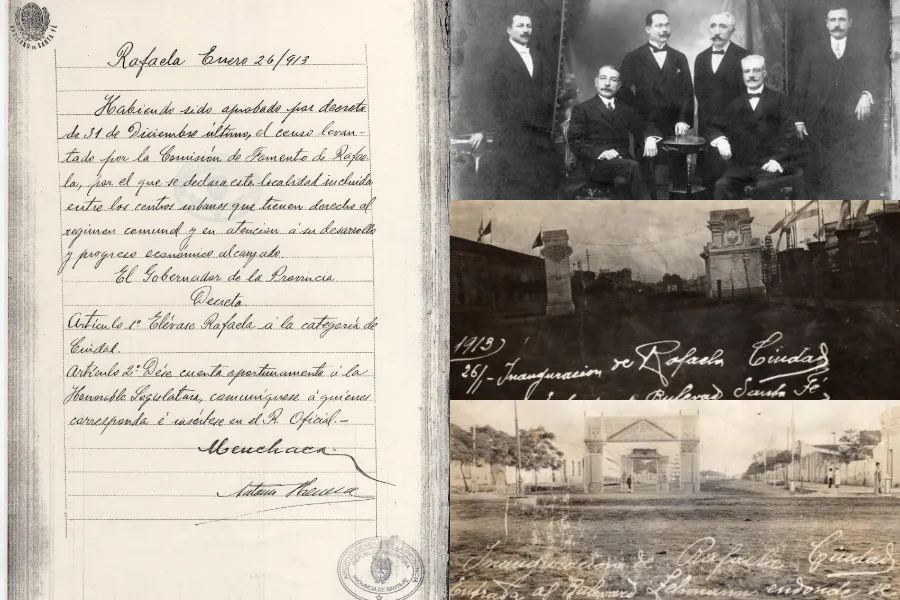 Rafaela Enero 26/913
Habiendo sido aprobado por decreto
de 31 de Diciembre último, el censo levan-
tado por la Comisión de Fomento de Rafae-
la, por el que se declara esta localidad incluida
entre los centros urbanos que tienen derecho al
regimen comunal y en atencion á su desarrollo
y progreso económico alcanzado.
El Gobernador de la Provincia
Decreta
Artículo 1º Elévase Rafaela á la categoría de
Ciudad.
Artículo 2º Dése cuenta oportunamente á la
Honorable Legislatura, comuníquese á quienes
corresponda é insértese en el R. Oficial.-
Menchaca
Antonio
PROVINCIA DE SANTA FE
1913)
26/- Inauguracion de Rafaela Ciudad
Bulevard Santa Fé
Inauguracion de Rafaela Ciudad
Entrada al Bulevard Lehmann endonde se